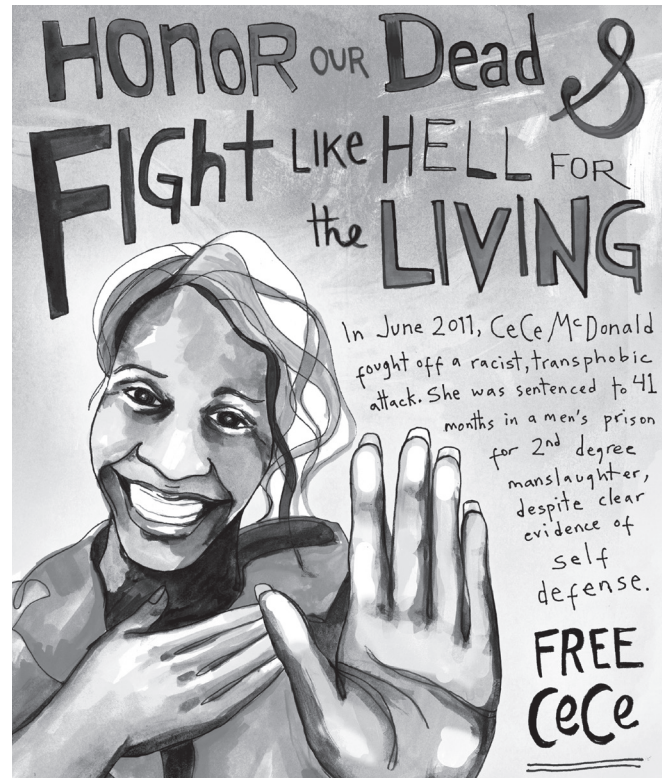 HONOR OUR Dead &
FIGht LIKe HELL FOR
the LIVING
In June 2011, CeCe McDonald
fought off a racist, transphobic
attack. She was sentenced to 41
months in a men's prison
for 2nd degree
manslaughter,
despite clear
evidence of
self
defense.
FREE
CeCe